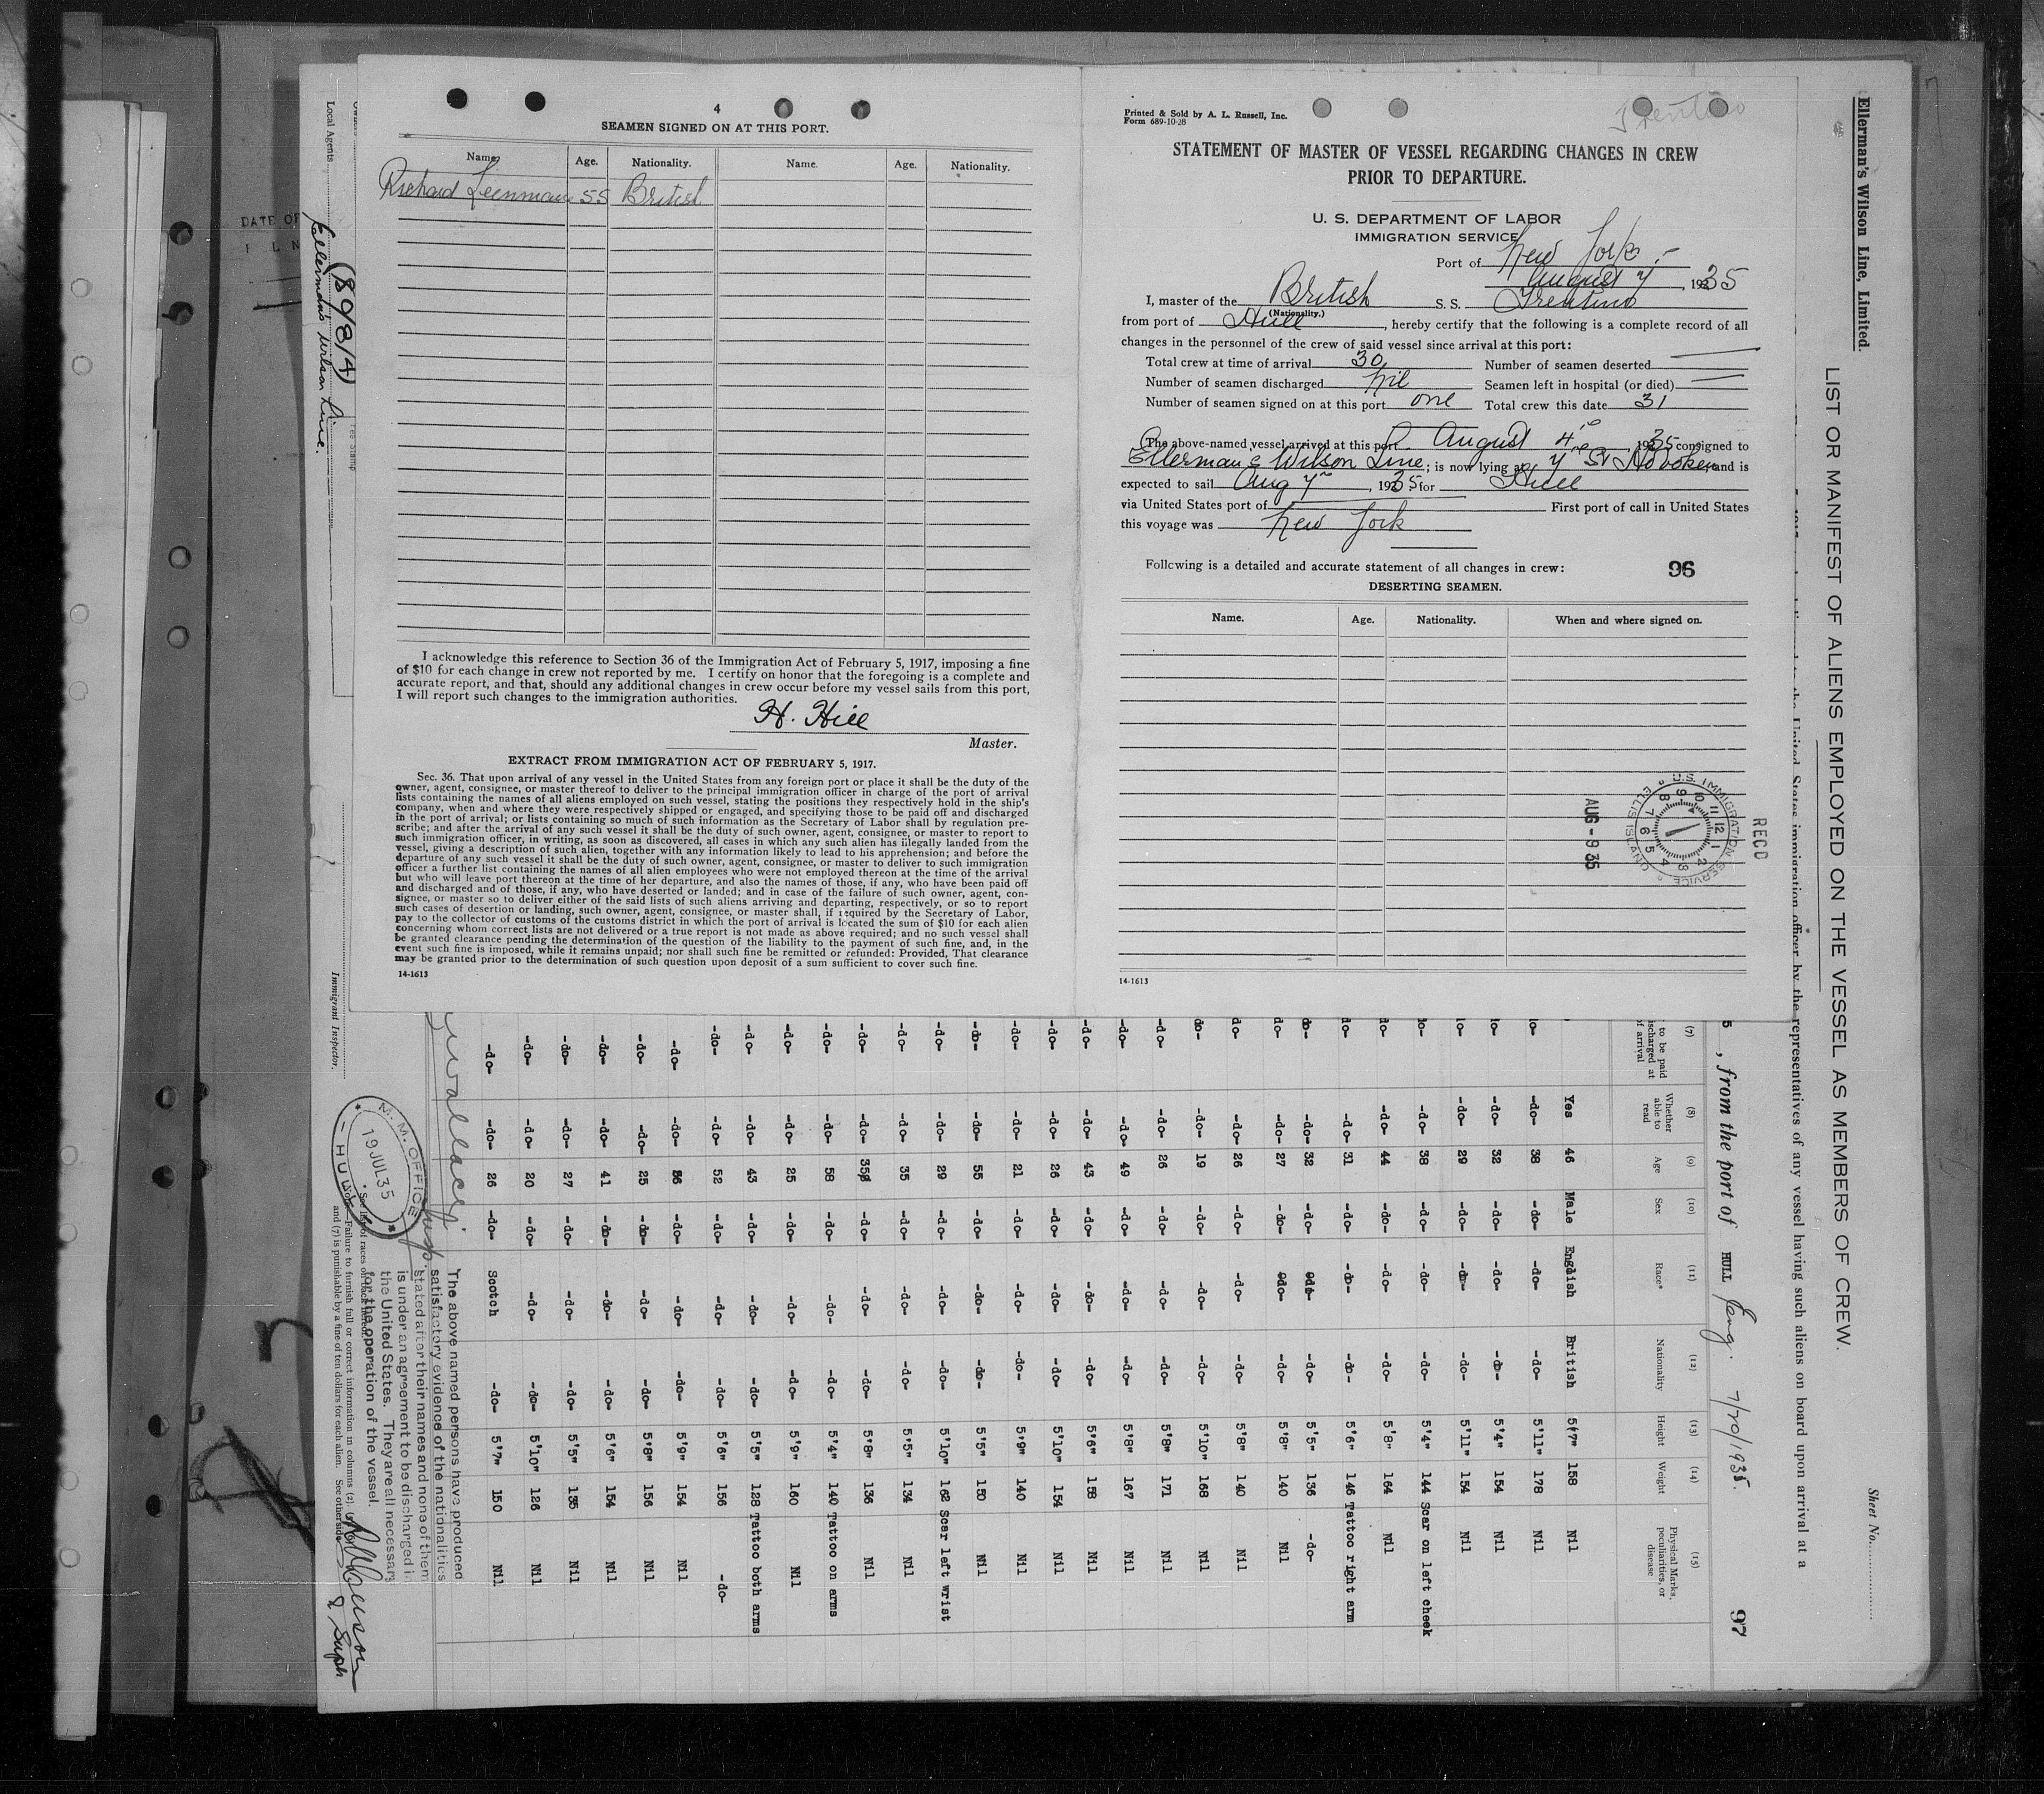 4
SEAMEN SIGNED ON AT THIS PORT.
Name. Age. Nationality. Name. Age. Nationality.
Richard 55 British
I acknowledge this reference to Section 36 of the Immigration Act of February 5, 1917, imposing a fine
of $10 for each change in crew not reported by me. I certify on honor that the foregoing is a complete and
accurate report, and that, should any additional changes in crew occur before my vessel sails from this port,
I will report such changes to the immigration authorities.
H. Hill
Master.
EXTRACT FROM IMMIGRATION ACT OF FEBRUARY 5, 1917.
Sec. 36. That upon arrival of any vessel in the United States from any foreign port or place it shall be the duty of the
owner, agent, consignee, or master thereof to deliver to the principal immigration officer in charge of the port of arrival
lists containing the names of all aliens employed on such vessel, stating the positions they respectively hold in the ship's
company, when and where they were respectively shipped or engaged, and specifying those to be paid off and discharged
in the port of arrival; or lists containing so much of such information as the Secretary of Labor shall by regulation pre-
scribe; and after the arrival of any such vessel it shall be the duty of such owner, agent, consignee, or master to report to
such immigration officer, in writing, as soon as discovered, all cases in which any such alien has illegally landed from the
vessel, giving a description of such alien, together with any information likely to lead to his apprehension; and before the
departure of any such vessel it shall be the duty of such owner, agent, consignee, or master to deliver to such immigration
officer a further list containing the names of all alien employees who were not employed thereon at the time of the arrival
but who will leave port thereon at the time of her departure, and also the names of those, if any, who have been paid off
and discharged and of those, if any, who have deserted or landed; and in case of the failure of such owner, agent, con-
signee, or master so to deliver either of the said lists of such aliens arriving and departing, respectively, or so to report
such cases of desertion or landing, such owner, agent, consignee, or master shall, if required by the Secretary of Labor,
pay to the collector of customs of the customs district in which the port of arrival is located the sum of $10 for each alien
concerning whom correct lists are not delivered or a true report is not made as above required; and no such vessel shall
be granted clearance pending the determination of the question of the liability to the payment of such fine, and, in the
event such fine is imposed, while it remains unpaid; nor shall such fine be remitted or refunded: Provided, That clearance
may be granted prior to the determination of such question upon deposit of a sum sufficient to cover such fine.
14-1613
Printed & Sold by A. L. Russell, Inc.
Form 689-10-28
Trentino
STATEMENT OF MASTER OF VESSEL REGARDING CHANGES IN CREW
PRIOR TO DEPARTURE.
U. S. DEPARTMENT OF LABOR
IMMIGRATION SERVICE
Port of New York
August 7, 1935
I, master of the British S. S. Trentino
(Nationality.)
from port of Hull, hereby certify that the following is a complete record of all
changes in the personnel of the crew of said vessel since arrival at this port:
Total crew at time of arrival 30 Number of seamen deserted
Number of seamen discharged nil Seamen left in hospital (or died)
Number of seamen signed on at this port one Total crew this date 31
The above-named vessel arrived at this port August 4th, 1935 consigned to
Ellerman's Wilson Line; is now lying at 7th St Hoboken and is
expected to sail Aug 7th, 1935 for Hull
via United States port of First port of call in United States
this voyage was New York
Following is a detailed and accurate statement of all changes in crew: 96
DESERTING SEAMEN.
Name. Age. Nationality. When and where signed on.
RECD
U.S. IMMIGRATION SERVICE
ELLIS ISLAND
AUG - 9 35
14-1613
Ellerman's Wilson Line, Limited.
Sheet No.
LIST OR MANIFEST OF ALIENS EMPLOYED ON THE VESSEL AS MEMBERS OF CREW.
the United States immigration officer by the representatives of any vessel having such aliens on board upon arrival at a
5, from the port of HULL Eng. 7/20/1935.
97
(7) (8) (9) (10) (11) (12) (13) (14) (15)
to be paid discharged at of arrival Whether able to read Age Sex Race* Nationality Height Weight Physical Marks, peculiarities, or disease
Yes 46 Male English British 5'7" 158 Nil
lo- -do- 38 -do- -do- -do- 5'11" 178 Nil
lo- -do- 32 -do- -do- -do- 5'4" 154 Nil
lo- -do- 29 -do- -do- -do- 5'11" 154 Nil
lo- -do- 38 -do- -do- -do- 5'4" 144 Scar on left cheek
lo- -do- 44 -do- -do- -do- 5'8" 164 Nil
do- -do- 31 -do- -do- -do- 5'6" 146 Tattoo right arm
do- -do- 32 -do- -do- -do- 5'5" 136 -do-
do- -do- 27 -do- -do- -do- 5'8" 140 Nil
do- -do- 26 -do- -do- -do- 5'8" 140 Nil
do- -do- 19 -do- -do- -do- 5'10" 168 Nil
-do- -do- 26 -do- -do- -do- 5'8" 171 Nil
-do- -do- 49 -do- -do- -do- 5'8" 167 Nil
-do- -do- 43 -do- -do- -do- 5'6" 158 Nil
-do- -do- 26 -do- -do- -do- 5'10" 154 Nil
-do- -do- 21 -do- -do- -do- 5'9" 140 Nil
-do- -do- 55 -do- -do- -do- 5'5" 150 Nil
-do- -do- 29 -do- -do- -do- 5'10" 162 Scar left wrist
-do- -do- 35 -do- -do- -do- 5'5" 134 Nil
-do- -do- 35 -do- -do- -do- 5'8" 136 Nil
-do- -do- 58 -do- -do- -do- 5'4" 140 Tattoo on arms
-do- -do- 25 -do- -do- -do- 5'9" 160 Nil
-do- -do- 43 -do- -do- -do- 5'5" 128 Tattoo both arms
-do- -do- 52 -do- -do- -do- 5'6" 156 -do-
-do- -do- -do- -do- -do- 5'9" 154 Nil
-do- -do- 25 -do- -do- -do- 5'8" 156 Nil
-do- -do- 41 -do- -do- -do- 5'6" 154 Nil
-do- -do- 27 -do- -do- -do- 5'5" 135 Nil
-do- -do- 20 -do- -do- -do- 5'10" 126 Nil
-do- -do- 26 -do- Scotch -do- 5'7" 150 Nil
The above named persons have produced
satisfactory evidence of the nationalities
stated after their names and none of them
is under an agreement to be discharged in
the United States. They are all necessary
for the operation of the vessel.
M. M. OFFICE
19 JUL 35
HULL
Immigrant Inspector.
Failure to furnish full or correct information in columns (2),
and (7) is punishable by a fine of ten dollars for each alien. See other side
Local Agents Ellerman's Wilson Line.
(89814)
DATE OF